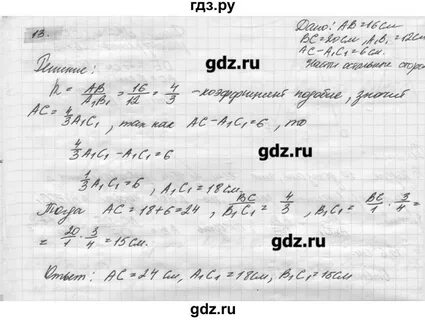 гдз.ру
13.
Дано: AB=16см
BC=20см, A₁B₁=12см
AC-A₁C₁=6см.
Найти остальные сторо
Решение:
k = AB/A₁B₁ = 16/12 = 4/3 - коэффициент подобия, значит
AC = 4/3 A₁C₁, так как AC-A₁C₁=6, то
4/3 A₁C₁ - A₁C₁ = 6
1/3 A₁C₁ = 6, A₁C₁ = 18см.
Тогда AC = 18+6 = 24, BC/B₁C₁ = 4/3, B₁C₁ = BC/1 · 3/4 =
= 20/1 · 3/4 = 15см.
Ответ: AC = 24 см, A₁C₁ = 18см, B₁C₁ = 15см
гдз.ру